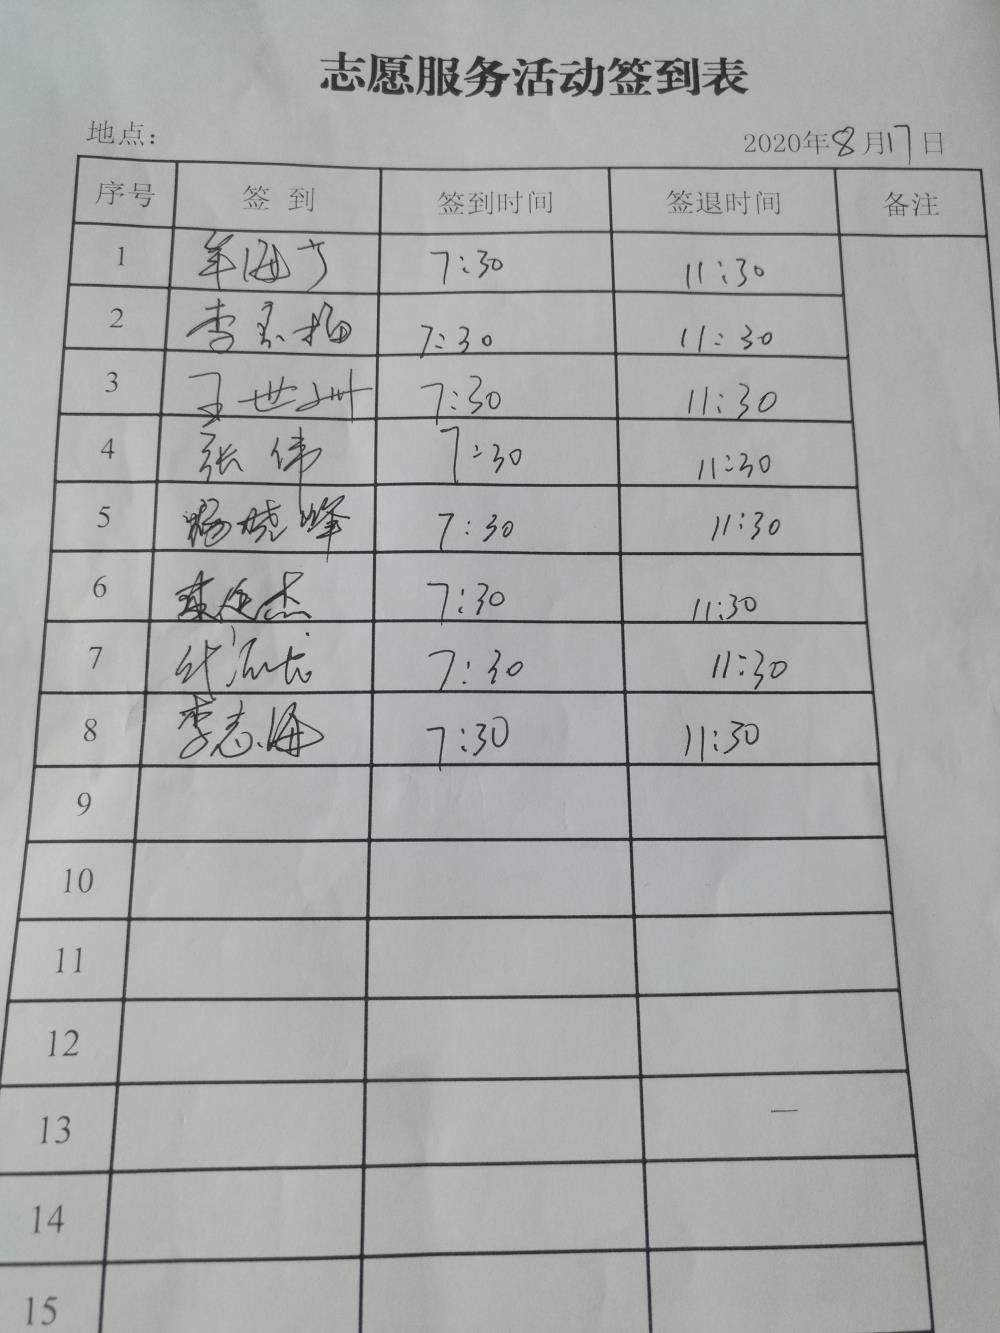 志愿服务活动签到表
地点： 2020年8月17日
序号 签到 签到时间 签退时间 备注
1 7:30 11:30
2 李玉梅 7:30 11:30
3 王世洲 7:30 11:30
4 张伟 7:30 11:30
5 杨晓峰 7:30 11:30
6 7:30 11:30
7 7:30 11:30
8 李志海 7:30 11:30
9
10
11
12
13
14
15